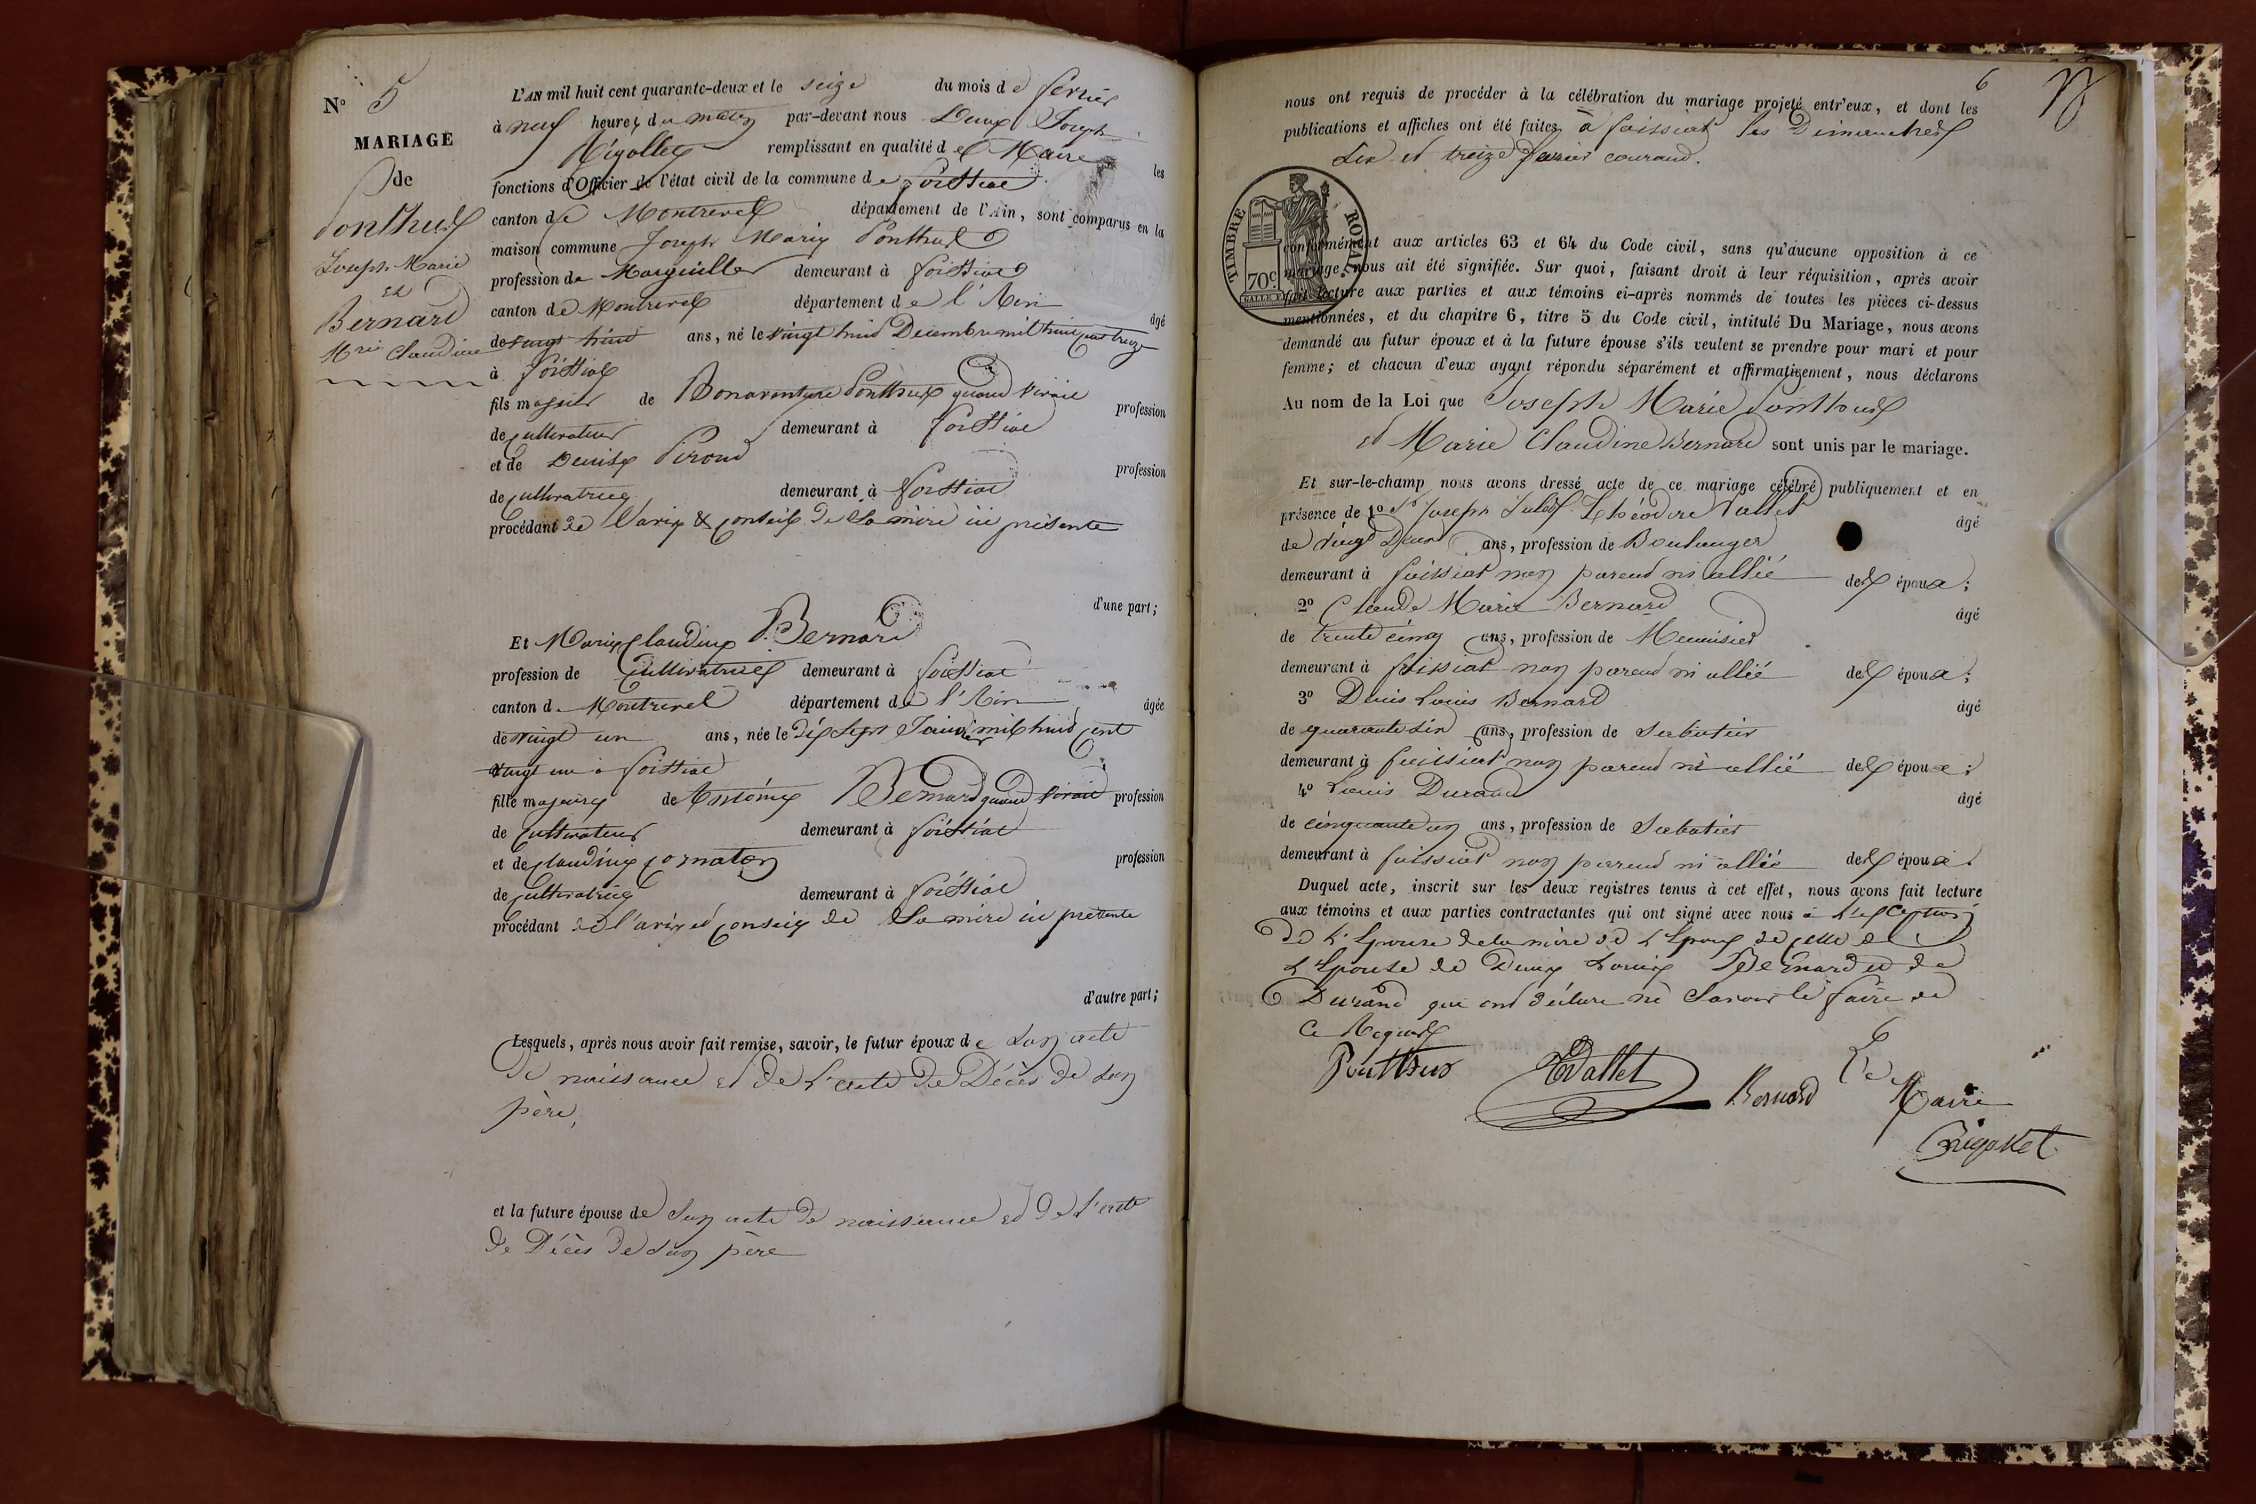 N° 5
MARIAGE
de
Ponthus
Joseph Marie
et
Bernard
Mrie Claudine
L'AN mil huit cent quarante-deux et le seize du mois de fevrier
à neuf heures du matin par-devant nous Denis Joseph
Rigollet remplissant en qualité de Maire les
fonctions d'Officier de l'état civil de la commune de foissiat
canton de Montrevel département de l'Ain, sont comparus en la
maison commune Joseph Marie Ponthus
profession de Marguiller demeurant à foissiat
canton de Montrevel département de l'Ain âgé
de vingt huit ans, né le vingt huit Décembre mil huit cent treize
à foissiat
fils majeur de Bonaventure Ponthus quand vivait profession
de cultivateur demeurant à foissiat
et de Denise Piroud profession
de cultivatrice demeurant à foissiat
procédant de l'avis & conseil de sa mère ici présente
d'une part;
Et Marie Claudine Bernard
profession de Cultivatrice demeurant à foissiat
canton de Montrevel département de l'Ain âgée
de vingt un ans, née le dix sept Janvier mil huit cent
vingt un à foissiat
fille majeure de Antoine Bernard quand vivait profession
de cultivateur demeurant à foissiat
et de Claudine Cornaton profession
de cultivatrice demeurant à foissiat
procédant de l'avis et conseil de sa mère ici présente
d'autre part;
Lesquels, après nous avoir fait remise, savoir, le futur époux de son acte
de naissance et de l'acte de Décès de son
père,
et la future épouse de son acte de naissance et de l'acte
de Décès de son père
6
nous ont requis de procéder à la célébration du mariage projeté entr'eux, et dont les
publications et affiches ont été faites à foissiat les Dimanches
six et treize fevrier courant.
TIMBRE ROYAL
70c.
conformément aux articles 63 et 64 du Code civil, sans qu'aucune opposition à ce
mariage nous ait été signifiée. Sur quoi, faisant droit à leur réquisition, après avoir
fait lecture aux parties et aux témoins ci-après nommés de toutes les pièces ci-dessus
mentionnées, et du chapitre 6, titre 5 du Code civil, intitulé Du Mariage, nous avons
demandé au futur époux et à la future épouse s'ils veulent se prendre pour mari et pour
femme; et chacun d'eux ayant répondu séparément et affirmativement, nous déclarons
Au nom de la Loi que Joseph Marie Ponthus
et Marie Claudine Bernard sont unis par le mariage.
Et sur-le-champ nous avons dressé acte de ce mariage célébré publiquement et en
présence de 1° Sr Joseph Jules Théodore Vallet âgé
de vingt Deux ans, profession de Boulanger
demeurant à foissiat non parend ni allié des époux;
2° Claude Marie Bernard âgé
de trente cinq ans, profession de Menuisier
demeurant à foissiat non parend ni allié des époux;
3° Denis Louis Bernard âgé
de quarante six ans, profession de Sabotier
demeurant à foissiat non parend ni allié des époux;
4° Louis Durand âgé
de cinquante un ans, profession de Sabotier
demeurant à foissiat non parend ni allié des époux.
Duquel acte, inscrit sur les deux registres tenus à cet effet, nous avons fait lecture
aux témoins et aux parties contractantes qui ont signé avec nous à l'exception
de l'Epouse de la mère de l'Epoux de celle de
l'Epouse de Denis Louis Bernard et de
Durand qui ont déclaré ne savoir le faire de
ce Requis
Ponthus Vallet Bernard Le Maire
Rigollet